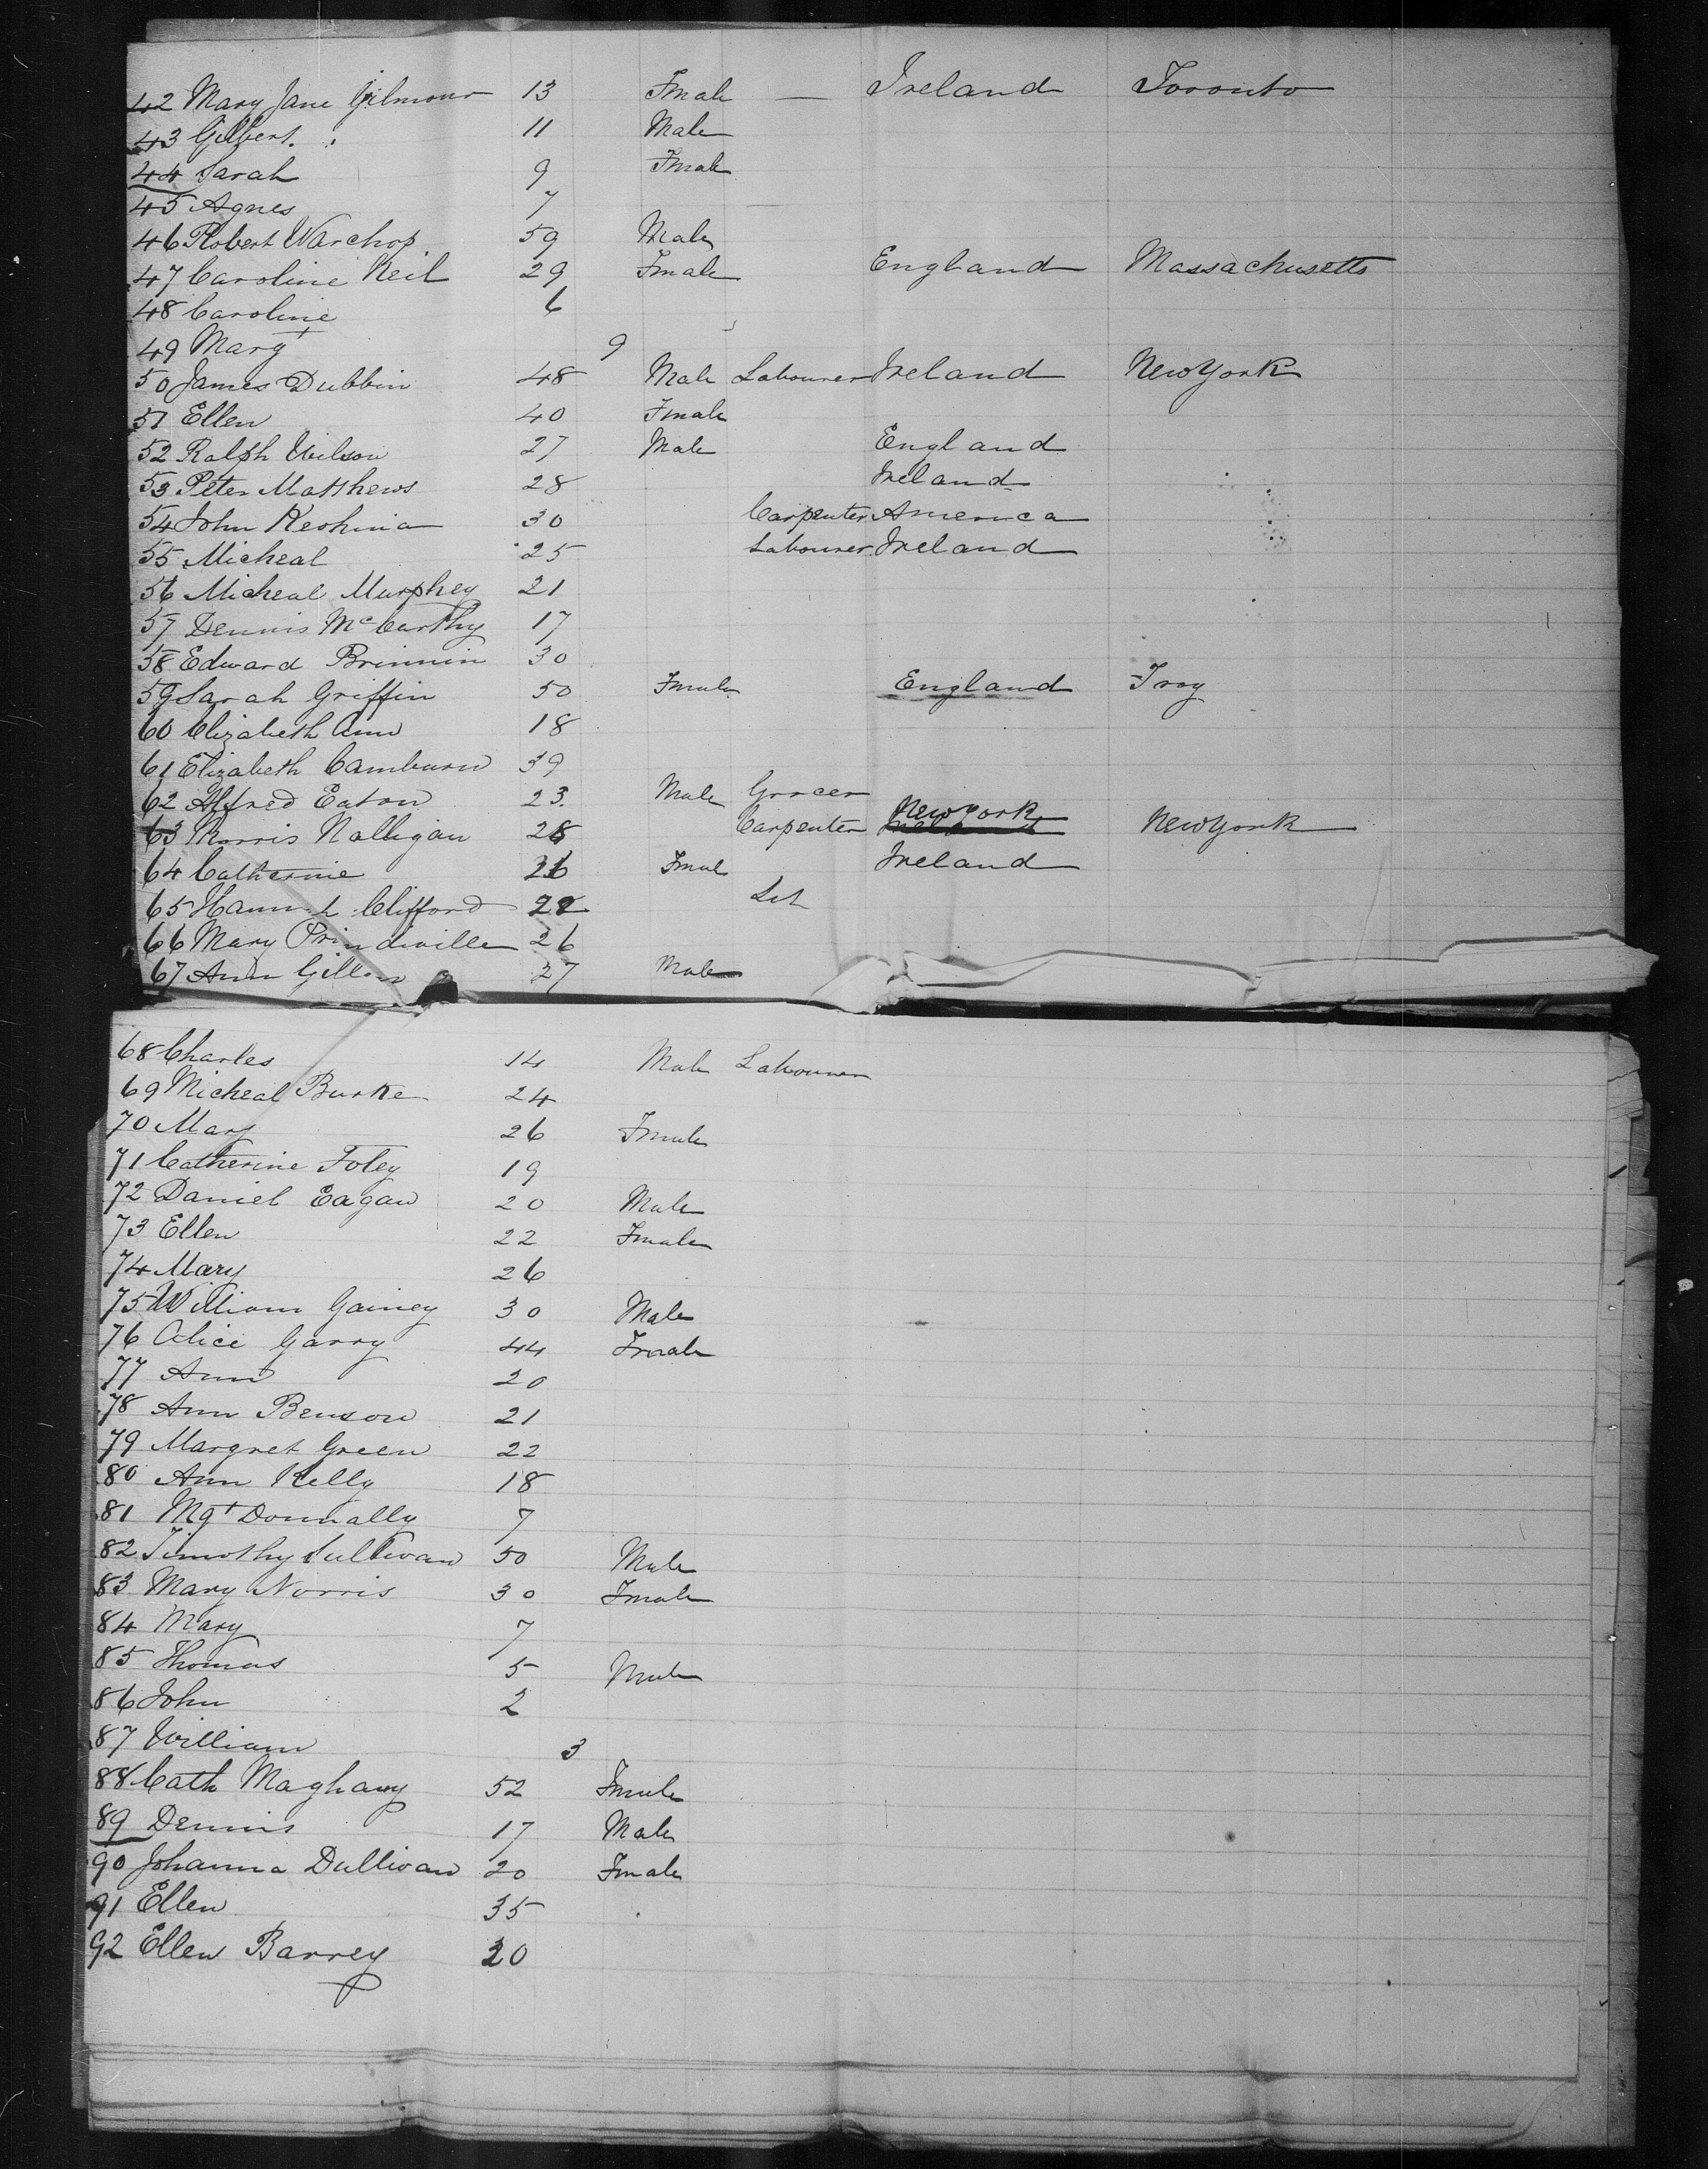 42 Mary Jane Gilmour 13 Fmale — Ireland Toronto
43 Gilbert 11 Male
44 Sarah 9 Fmale
45 Agnes 7
46 Robert Warchop 59 Male
47 Caroline Keil 29 Fmale England Massachusetts
48 Caroline 6
49 Mary 9
50 James Dubbin 48 Male Labourer Ireland New York
51 Ellen 40 Fmale
52 Ralph Wilson 27 Male England
53 Peter Matthews 28 Ireland
54 John Keohina 30 Carpenter America
55 Micheal 25 Labourer Ireland
56 Micheal Murphey 21
57 Dennis McCarthy 17
58 Edward Brinnin 30
59 Sarah Griffin 50 Fmale England Troy
60 Elizabeth Ann 18
61 Elizabeth Camburn 39
62 Alfred Eaton 23 Male Grocer New York
63 Morris Nalligan 28 Carpenter New York
64 Catherine 26 Fmal Ireland
65 Hannah Clifford 28
66 Mary Prindiville 26
67 Ann Gillen 27 Male
68 Charles 14 Male Labourer
69 Micheal Burke 24
70 Mary 26 Fmale
71 Catherine Foley 19
72 Daniel Eagan 20 Male
73 Ellen 22 Fmale
74 Mary 26
75 William Gainey 30 Male
76 Alice Garry 44 Fmale
77 Ann 20
78 Ann Benson 21
79 Margret Green 22
80 Ann Kelly 18
81 Mgt Donnally 7
82 Timothy Sullivan 50 Male
83 Mary Norris 30 Fmale
84 Mary 7
85 Thomas 5 Male
86 John 2
87 William 3
88 Cath Maghany 52 Fmale
89 Dennis 17 Male
90 Johanna Dullivan 20 Fmale
91 Ellen 35
92 Ellen Barrey 20